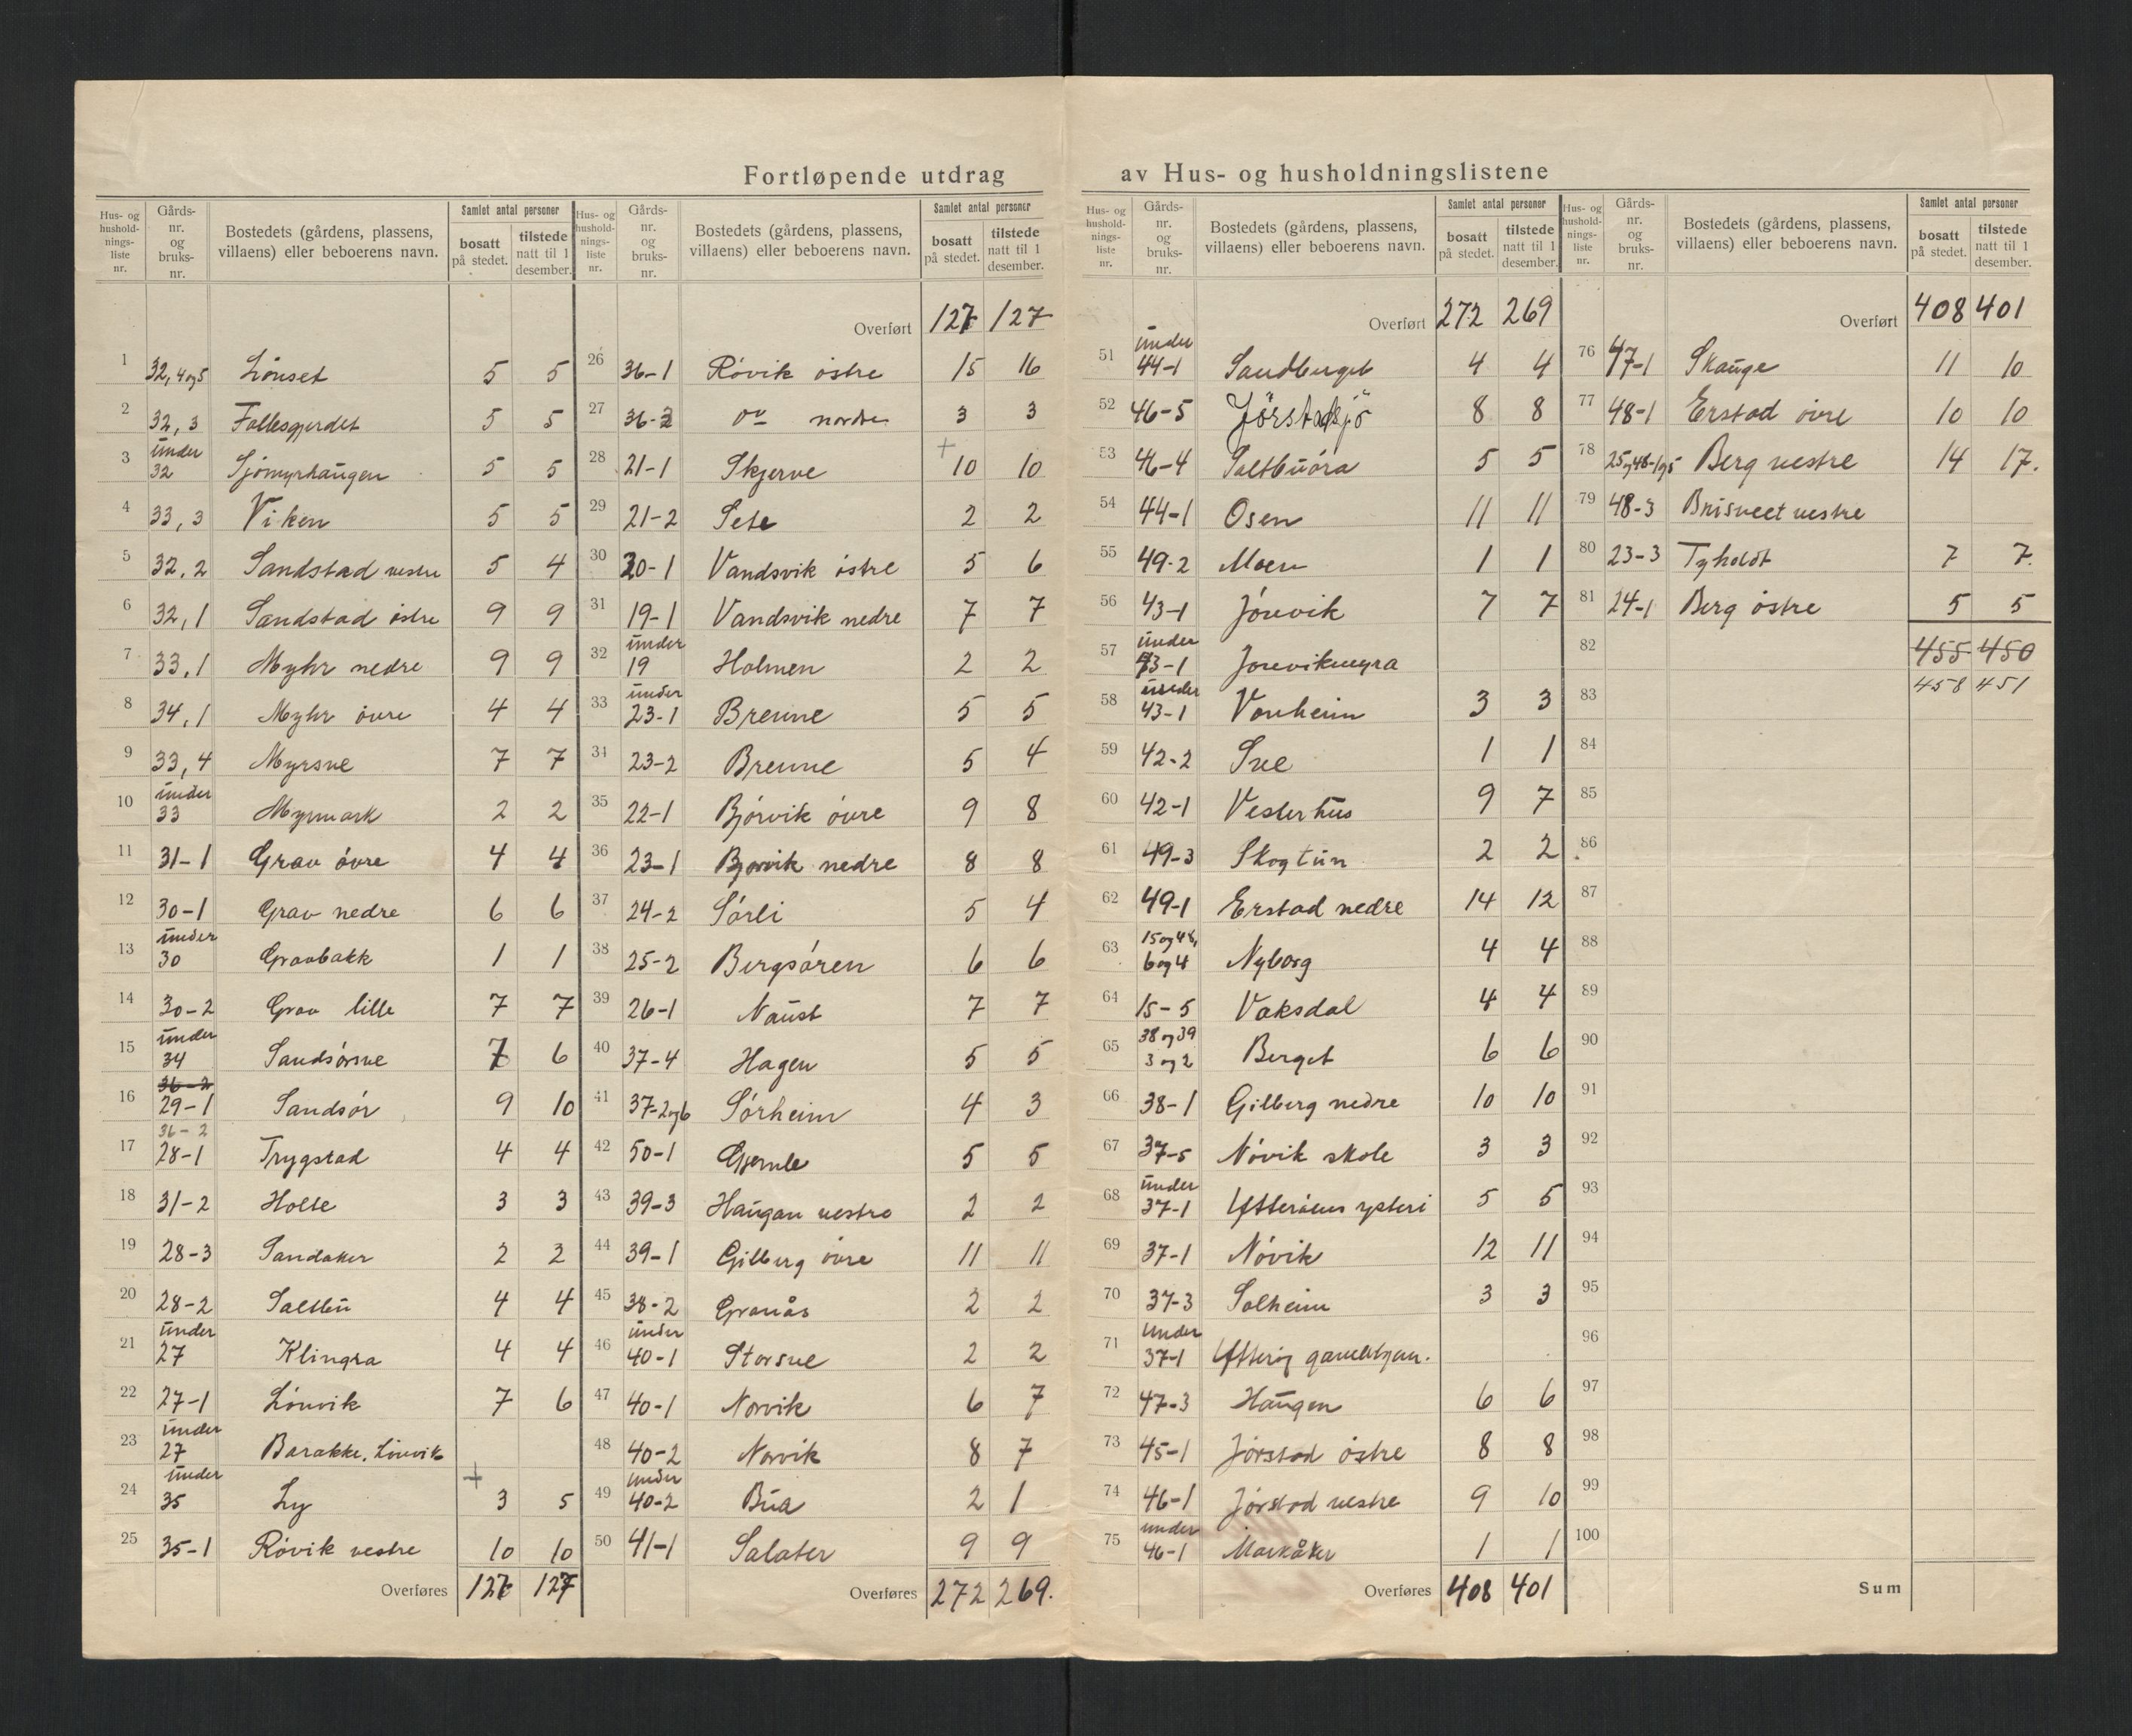 Fortløpende utdrag av Hus- og husholdningslistene
Hus- og hushold-nings-liste nr. Gårds-nr. og bruks-nr. Bostedets (gårdens, plassens, villaens) eller beboerens navn. Samlet antal personer bosatt på stedet. tilstede natt til 1 desember.
1 32, 4 og 5 Lönset 5 5
2 32, 3 Fallesgjerdet 5 5
3 under 32 Sjömyrhaugen 5 5
4 33, 3 Viken 5 5
5 32, 2 Sandstad vestre 5 4
6 32, 1 Sandstad östre 9 9
7 33, 1 Myhr nedre 9 9
8 34, 1 Myhr övre 4 4
9 33, 4 Myrsve 7 7
10 under 33 Myrmark 2 2
11 31-1 Grav övre 4 4
12 30-1 Grav nedre 6 6
13 under 30 Gravbakk 1 1
14 30-2 Grav lille 7 7
15 under 34 Sandsörsve 7 6
16 36-2 29-1 Sandsör 9 10
17 36-2 28-1 Trygstad 4 4
18 31-2 Holte 3 3
19 28-3 Sandaker 2 2
20 28-2 Saltbu 4 4
21 under 27 Klingra 4 4
22 27-1 Lönvik 7 6
23 under 27 Barakke, Lönvik
24 under 35 Ly + 3 5
25 35-1 Rövik vestre 10 10
Overføres 127 127
Hus- og hushold-nings-liste nr. Gårds-nr. og bruks-nr. Bostedets (gårdens, plassens, villaens) eller beboerens navn. Samlet antal personer bosatt på stedet. tilstede natt til 1 desember.
Overført 127 127
26 36-1 Rövik östre 15 16
27 36-3 do nordre 3 3
28 21-1 Skjerve + 10 10
29 21-2 Sete 2 2
30 20-1 Vandsvik östre 5 6
31 19-1 Vandsvik nedre 7 7
32 under 19 Holmen 2 2
33 under 23-1 Brenne 5 5
34 23-2 Brenne 5 4
35 22-1 Björvik övre 9 8
36 23-1 Bjorvik nedre 8 8
37 24-2 Sörli 5 4
38 25-2 Bergsören 6 6
39 26-1 Naust 7 7
40 37-4 Hagen 5 5
41 37-2og6 Sörheim 4 3
42 50-1 Gjemle 5 5
43 39-3 Haugan vestre 2 2
44 39-1 Gilberg övre 11 11
45 38-2 Granås 2 2
46 under 40-1 Storsve 2 2
47 40-1 Norvik 6 7
48 40-2 Norvik 8 7
49 under 40-2 Bua 2 1
50 41-1 Salater 9 9
Overføres 272 269.
Hus- og hushold-nings-liste nr. Gårds-nr. og bruks-nr. Bostedets (gårdens, plassens, villaens) eller beboerens navn. Samlet antal personer bosatt på stedet. tilstede natt til 1 desember.
Overført 272 269
51 under 44-1 Sandberget 4 4
52 46-5 Jörstadsjö 8 8
53 46-4 Saltbuöra 5 5
54 44-1 Osen 11 11
55 49-2 Moen 1 1
56 43-1 Jörevik 7 7
57 under 43-1 Jorevikmyra
58 under 43-1 Vonheim 3 3
59 42-2 Sve 1 1
60 42-1 Vesterhus 9 7
61 49-3 Skogtun 2 2
62 49-1 Erstad nedre 14 12
63 15 og 48, 6 og 4 Nyborg 4 4
64 15-5 Vaksdal 4 4
65 38 og 39 3 og 2 Berget 6 6
66 38-1 Gilberg nedre 10 10
67 37-5 Növik skole 3 3
68 under 37-1 Ytteröens ysteri 5 5
69 37-1 Növik 12 11
70 37-3 Solheim 3 3
71 under 37-1 Ytteröy gamlehjem.
72 47-3 Haugen 6 6
73 45-1 Jörstad östre 8 8
74 46-1 Jörstad vestre 9 10
75 under 46-1 Markåker 1 1
Overføres 408 401
Hus- og hushold-nings-liste nr. Gårds-nr. og bruks-nr. Bostedets (gårdens, plassens, villaens) eller beboerens navn. Samlet antal personer bosatt på stedet. tilstede natt til 1 desember.
Overført 408 401
76 47-1 Skauge 11 10
77 48-1 Erstad övre 10 10
78 25 og 48-1og5 Berg vestre 14 17.
79 48-3 vestre
80 23-3 Tyholdt 7 7.
81 24-1 Berg östre 5 5
82 455 450
83 458 451
84
85
86
87
88
89
90
91
92
93
94
95
96
97
98
99
100
Sum